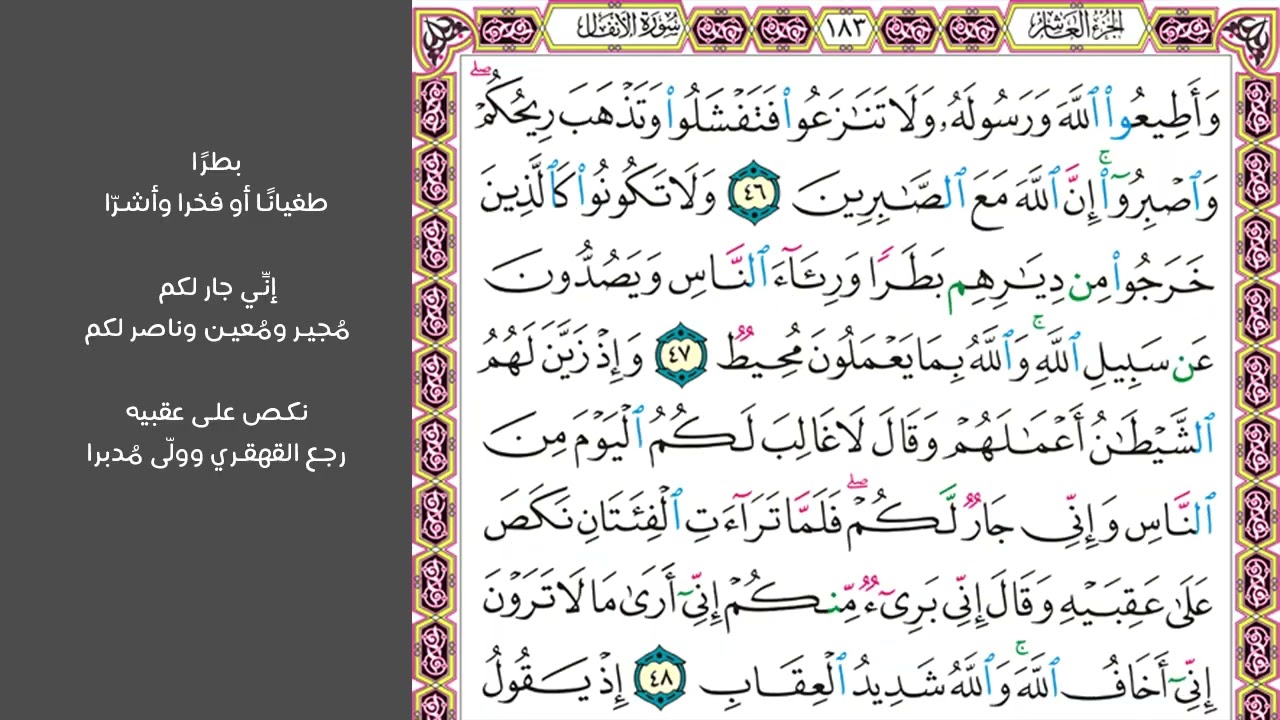 الجزء العاشر
١٨٣
سورة الأنفال
وَأَطِيعُوا۟ ٱللَّهَ وَرَسُولَهُۥ وَلَا تَنَـٰزَعُوا۟ فَتَفْشَلُوا۟ وَتَذْهَبَ رِيحُكُمْ ۖ
وَٱصْبِرُوٓا۟ ۚ إِنَّ ٱللَّهَ مَعَ ٱلصَّـٰبِرِينَ ٤٦ وَلَا تَكُونُوا۟ كَٱلَّذِينَ
خَرَجُوا۟ مِن دِيَـٰرِهِم بَطَرًا وَرِئَآءَ ٱلنَّاسِ وَيَصُدُّونَ
عَن سَبِيلِ ٱللَّهِ ۚ وَٱللَّهُ بِمَا يَعْمَلُونَ مُحِيطٌ ٤٧ وَإِذْ زَيَّنَ لَهُمُ
ٱلشَّيْطَـٰنُ أَعْمَـٰلَهُمْ وَقَالَ لَا غَالِبَ لَكُمُ ٱلْيَوْمَ مِنَ
ٱلنَّاسِ وَإِنِّى جَارٌ لَّكُمْ ۖ فَلَمَّا تَرَآءَتِ ٱلْفِئَتَانِ نَكَصَ
عَلَىٰ عَقِبَيْهِ وَقَالَ إِنِّى بَرِىٓءٌ مِّنكُمْ إِنِّىٓ أَرَىٰ مَا لَا تَرَوْنَ
إِنِّىٓ أَخَافُ ٱللَّهَ ۚ وَٱللَّهُ شَدِيدُ ٱلْعِقَابِ ٤٨ إِذْ يَقُولُ
بطرًا
طغيانًا أو فخرا وأشرّا
إنِّي جار لكم
مُجير ومُعين وناصر لكم
نكص على عقبيه
رجع القهقري وولّى مُدبرا